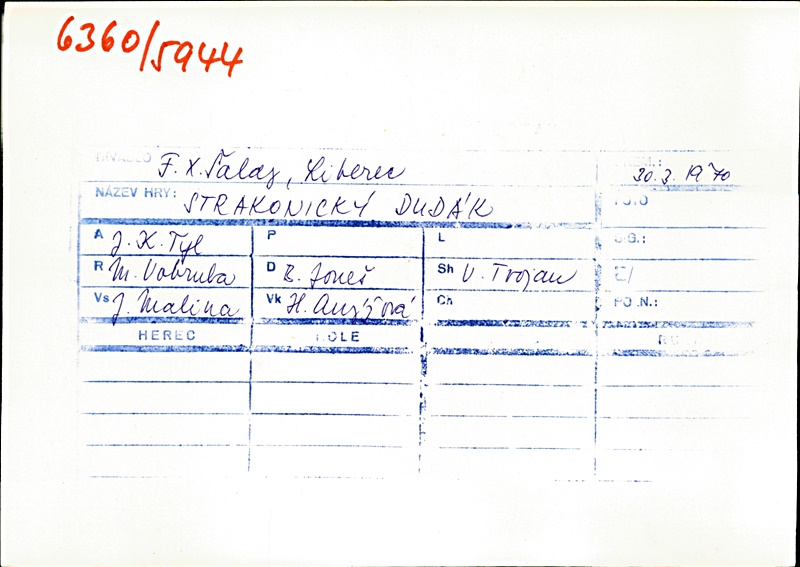 6360/5944
DIVADLO F. X. Šaldy, Liberec
30.3.1970
NÁZEV HRY: STRAKONICKÝ DUDÁK
FOTO
A J. K. Tyl P L
R M. Vobruba D B. Joneš Sh V. Trojan
Vs J. Malina Vk H. Ch
HEREC ROLE